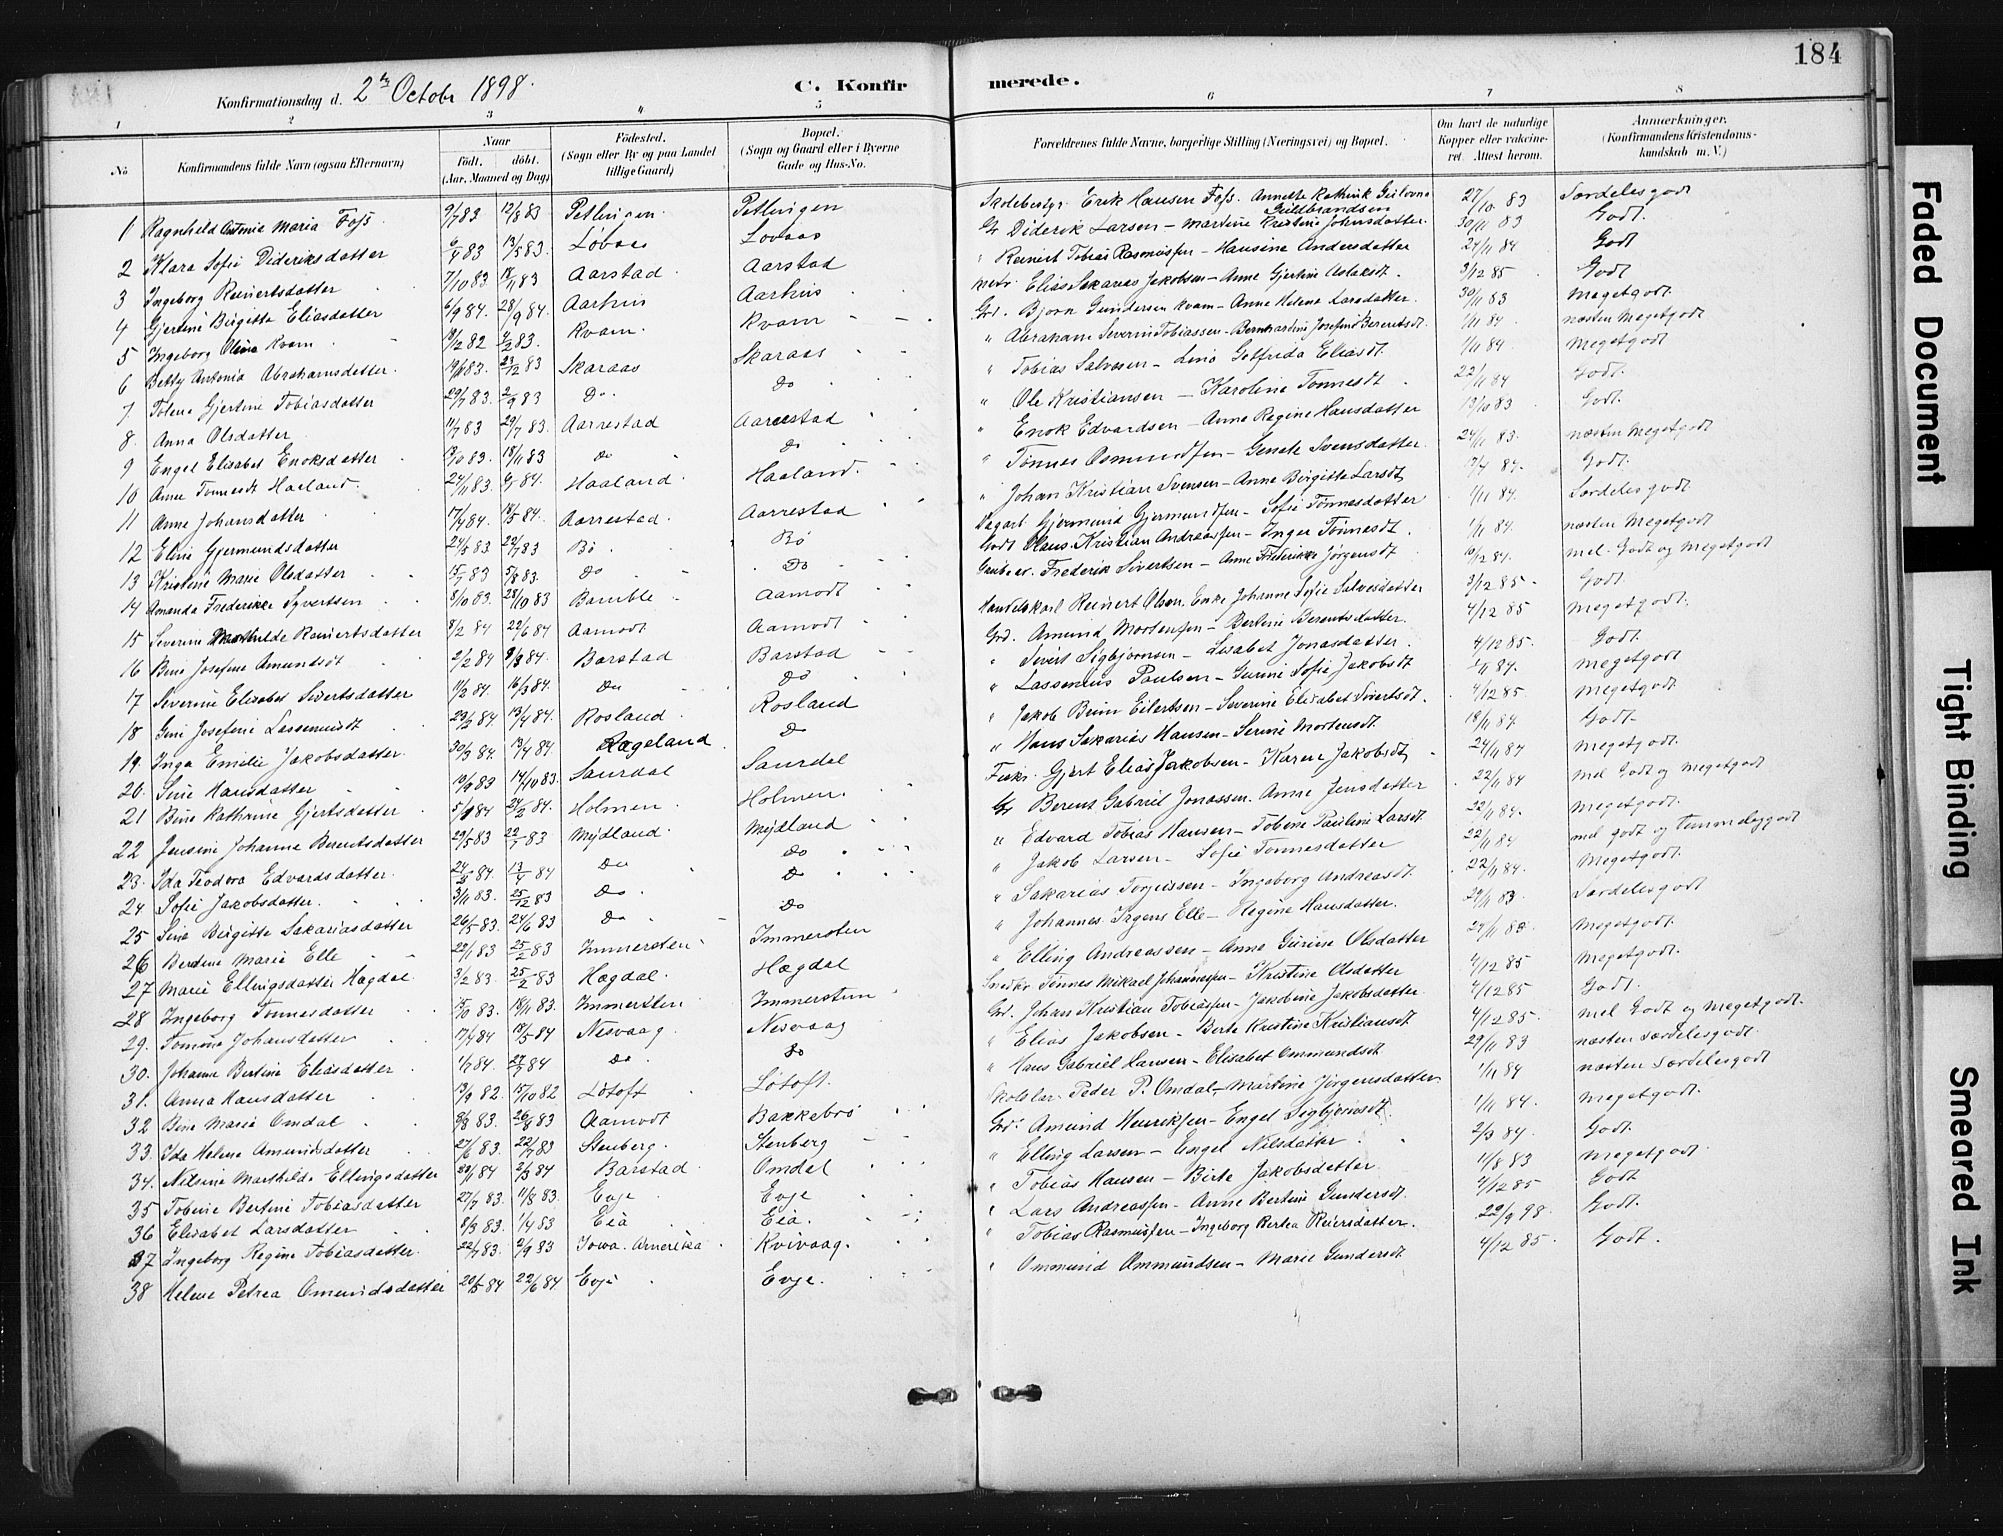 184
Konfirmationsdag d. 2den Octobr 1898.
C. Konfirmerede.
1 2 3 4 5 6 7 8
No
Konfirmandens fulde Navn (ogsaa Efternavn)
Naar født. døbt. (Aar, Maaned og Dag)
Födested. (Sogn eller By og paa Landet tillige Gaard)
Bopæl. (Sogn og Gaard eller i Byerne Gade og Hus-No.
Forældrenes fulde Navne, borgerlige Stilling (Næringsvei) og Bopæl.
Om havt de naturlige Kopper eller vakcineret. Attest herom.
Anmærkninger. (Konfirmandens Kristendomskundskab m. V.)
1 Ragnhild Antonia Maria Foss 9/7 83 12/8 83 Petlerigen Petlerigen Skolebestyr. Erik Hansen Foss. Annette Kathrik Guldbrandsen 27/10 83 Særdelesgodt
2 Klara Sofie Dideriksdatter 6/4 83 13/5 83. Løvaas Lovaas Gr Diderik Larsen - Martine Kristine Johnsdatter 30/11 83 Godt.
3 Ingeborg Reinertsdatter 7/10 83 18/11 83 Aarstad Aarstad " Reinert Tobias Rasmussen - Hansine Andersdatter 24/11 84 Godt
4 Gjertine Birgitte Eliasdatter 6/9 84. 28/9 84. Aarhus Aarhus Elias Sakarias Jakobsen - Anne Gjertine Aslaksdt. 3/12 85 Godt
5 Ingeborg Olene Kvam 19/12 82 4/2 83. Kvam. Kvam Grd. Bjørn Gundersen Kvam - Anne Helene Larsdatter. 30/11 83 Megetgodt.
6 Betty Antonia Abrahamsdatter. 23/12 83 Skaraas Skaraas " Abraham Severin Tobiassen - Bernhardine Josefine Berentsdt. 1/11 84. næsten Megetgodt
7 Tolene Gjertine Tobiasdatter 29/7 83. 2/9 83 Do. Do " Tobias Salvesen - Line Gotfrida Eliasdt. 1/11 84 Megetgodt
8 Anna Olsdatter 11/7 83 29/7 83. Aarrestad Aarrestad " Ole Kristiansen - Karoline Tonnesdt 22/11 84 Godt.
9 Engel Elisabet Enoksdatter 18/11 83 Do Do " Enok Edvardsen - Anne Regine Hansdatter 19/10 83 Godt.
10 Anne Tonnesdt Haaland. 24/11 83. 6/1 84. Haaland. Haaland. " Tønnes Osmundsen - Genete Svensdatter. 24/11 83. næsten Megetgodt
11 Anne Johansdatter 17/4 84. 18/5 84. Aarrestad. Aarrestad " Johan Kristian Svensen - Anne Birgitte Larsdt 84. Godt.
12 Eline Gjermundsdatter 24/5 83 22/7 83 Bø Bø Gjermund Gjermundsen - Sofie Tønnesdatter 1/11 84. Særdelesgodt
13 Kristine Marie Olsdatter 15/7 83 5/8 83. Do Do Olaus Kristian Andreassen - Inger Tønnesdt. 1/11 84. næsten Megetgodt
14 Amanda Frederikke Syvertsen 8/10 83. 28/10 83 Bamble Aamodt Frederik Sivertsen - Anne Frederikke Jørgensdt 10/2 84. mel. Godt og Megetgodt
15 Severine Mathilde Reinertsdatter 8/2 84 22/6 84 Aamodt Aamodt Handelskarl Reinert Olsen. Enke Johanne Sofie Salvesdatter 3/12 85. Godt.
16 Bine Josefine Amundsdt 2/2 84 9/3 84. Barstad Barstad Grd. Amund Mortensen - Bertine Berentsdatter. 4/12 85 Megetgodt.
17 Severine Elisabet Sivertsdatter 11/2 84. 16/3 84. Do Do " Sivert Sigbjørnsen - Lisabet Jonasdatter. 4/12 85. Godt.
18 Gine Josefine Lassenusdt 29/2 84 13/4 84. Rosland Rosland " Lassenius Paulsen - Gurine Sofie Jakobsdt 1/11 84. Megetgodt
19. Inga Emilie Jakobsdatter 30/3 84. 13/4 84 Rægeland Do " Jakob Beim Eilertsen - Severine Elisabet Sivertsdt. 4/12 85 Megetgodt
20. Sine Hansdatter 14/10 83. Saurdal Saurdal " Hans Sakarias Hansen - Serine Mortensdt. 18/11 84. Godt.
21 Bine Kathrine Gjertsdatter 24/2 84. Holmen. Holmen. Gjert Elias Jakobsen - Karen Jakobsdt 24/11 84 Megetgodt.
22 Jensine Johanne Berentsdatter 29/5 83 22/7 83 Mydland. Mydland Gr Berent Gabriel Jonassen. Anne Jensdatter 22/11 84 mel Godt og Megetgodt
23. Ida Teodora Edvardsdatter. 24/2 84 13/4 84 Do Do " Edvard Tobias Hansen - Tobine Pauline Larsdt. 22/11 84. Megetgodt.
24 Sofie Jakobsdatter. 3/11 83. 25/12 83 Do. Do " Jakob Larsen - Sofie Tonnesdatter 22/11 84 mel godt og temmeliggodt
25 Sine Birgitte Sakariasdatter 26/5 83. 24/6 83 Do Do " Sakarias Torjussen - Ingeborg Andreasdt. 22/11 84. Megetgodt.
26 Bertine Marie Elle 22/1 83 25/2 83 Immersten Immersten " Johannes Irgens Elle - Regine Hansdatter. 29/11 83 Særdelesgodt
27 Marie Ellingsdatter Hægdal 3/2 83. 25/2 83 Hægdal. Hægdal " Elling Andreassen - Anne Gurine Olsdatter 24/11 83 Megetgodt.
28 Ingeborg Tonnesdatter 15/10 83. 18/11 83. Immersten Immersten Snedkr Tønnes Mikael Johannessen - Kristine Olsdatter 4/12 85 Megetgodt.
29. Tomine Johansdatter 17/4 84 18/5 84 Nesvaag. Nesvaag Grd. Johan Kristian Tobiassen - Jakobine Jakobsdatter. 4/12 85 Godt.
30. Johanne Bertine Eliasdatter 84. 84 Do Do " Elias Jakobsen - Birte Kristine Kristiansdt 4/12 85. mel Godt og Megetgodt.
31. Anna Hansdatter 13/9 82. 15/10 82 Løtoft Løtoft. " Hans Gabriel Hansen - Elisabet Ommundsdt 29/11 83 næsten særdelesgodt.
32 Bine Marie Omdal 9/8 83. 26/8 83 Aamodt Bakkebrø Skolelær. Peder P. Omdal - Martine Jørgensdatter. 1/11 84 næsten Særdelesgodt
33. Ida Helene Amundsdatter 27/6 83. 22/7 83 Stenberg. Stenberg Grd. Amund Henriksen - Engel Sigbjørnsdt. 1/11 84. Megetgodt.
34. Nilsine Marthilde Ellingsdatter 29/1 84 2/3 84 Barstad. Omdal " Elling Larsen - Engel Nilsdatter. 2/3 84 Godt.
35 Tobine Bertine Tobiasdatter 27/7 83. 11/8 83. Evje Evje " Tobias Hansen - Birte Jakobsdatter. 1/8 83 Megetgodt.
36 Elisabet Larsdatter 8/3 83. 1/4 83 Eia Eia. " Lars Andreassen - Anne Bertine Gundersdt. 4/12 85 Godt
37 Ingeborg Regine Tobiasdatter. 22/7 83. 2/9 83 Iowa. Amerika Kvivaag. " Tobias Rasmussen - Ingeborg Bertea Reiersdatter. 22/9 98. Godt.
38 Helene Petrea Omundsdatter 20/5 84 22/6 84 Evje Evje. " Ommund Ommundsen - Marie Gundersdt 4/12 85. Godt.
Faded Document
Tight Binding
Smeared Ink